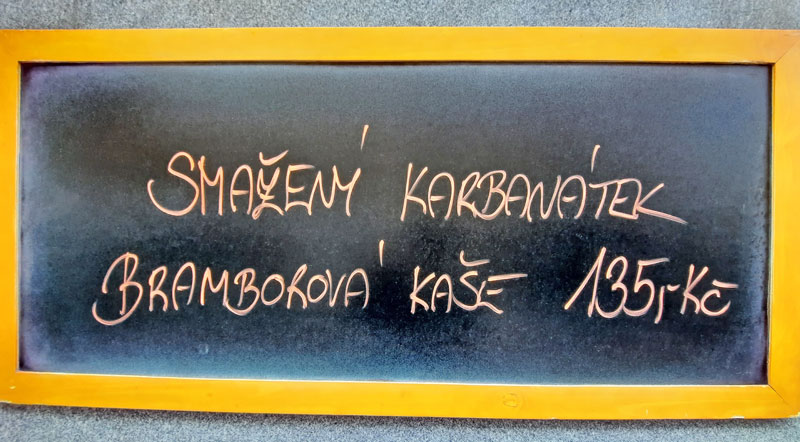 SMAŽENÝ KARBANÁTEK
BRAMBOROVÁ KAŠE 135,-Kč